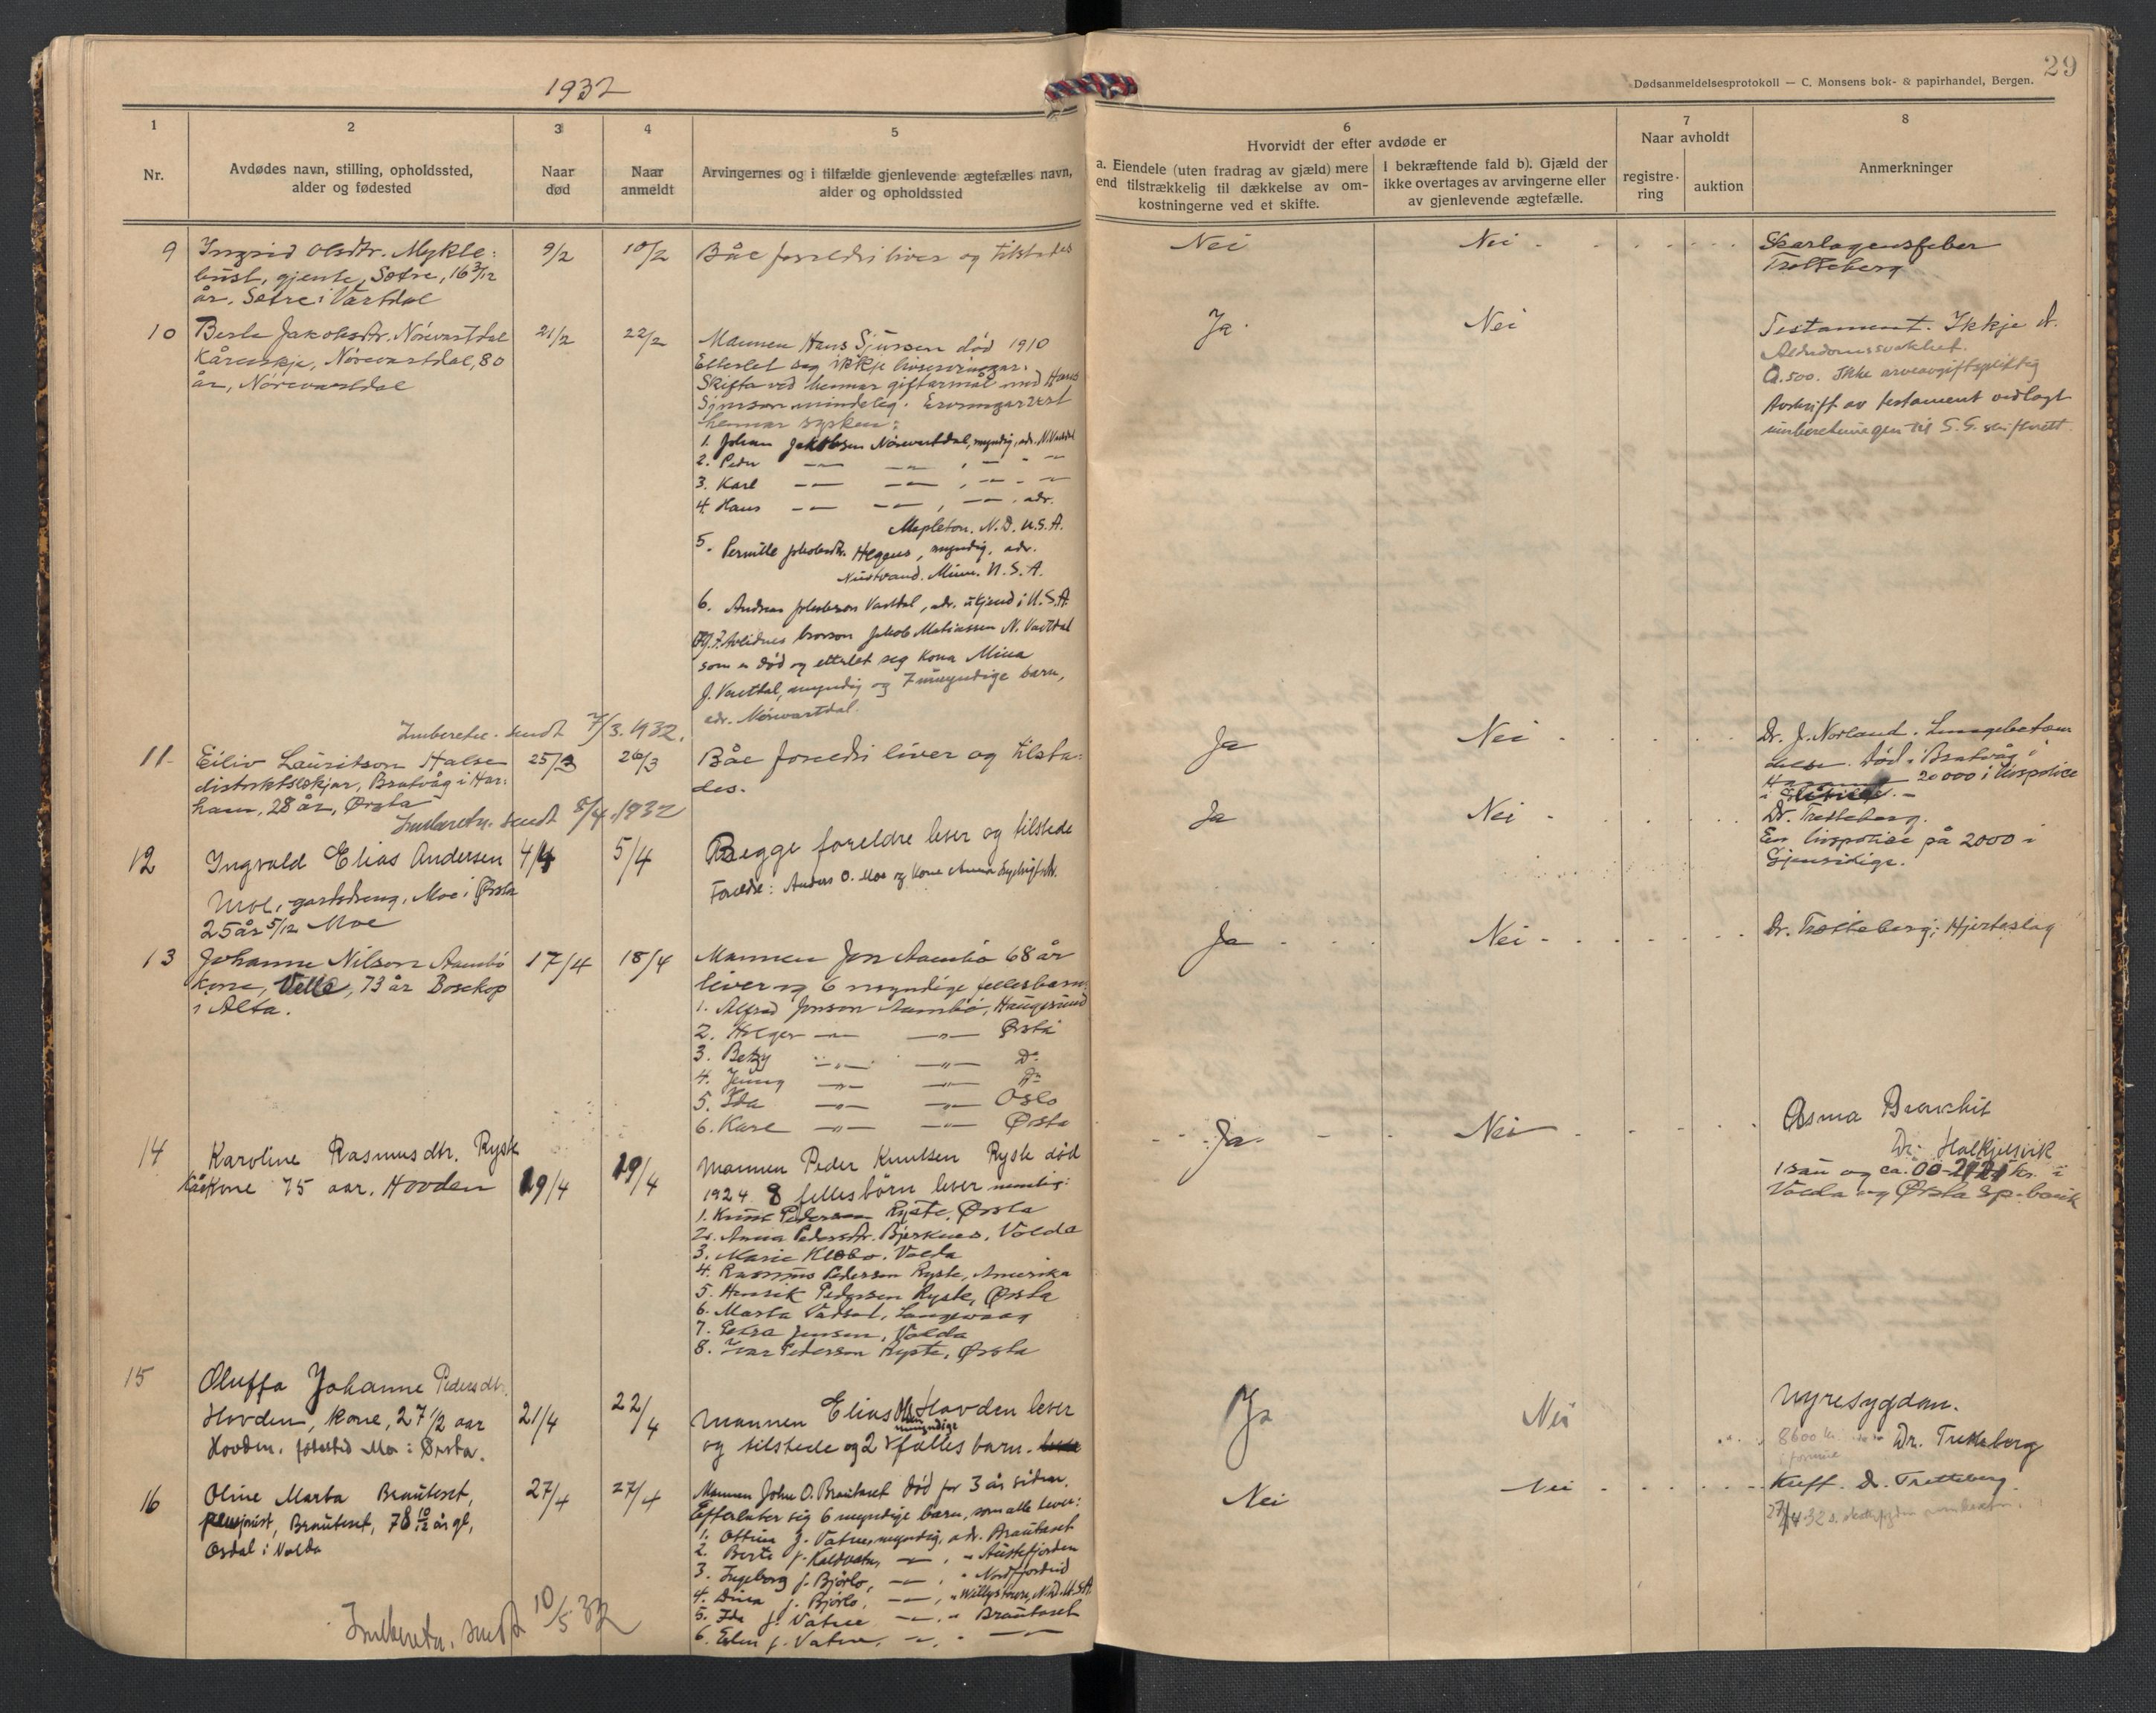 1932
29
Dødsanmeldelsesprotokoll — C. Monsens bok- & papirhandel, Bergen.
1
Nr.
2
Avdødes navn, stilling, opholdssted,
alder og fødested
3
Naar
død
4
Naar
anmeldt
5
Arvingernes og i tilfælde gjenlevende ægtefælles navn,
alder og opholdssted
6
Hvorvidt der efter avdøde er
a. Eiendele (uten fradrag av gjæld) mere
end tilstrækkelig til dækkelse av om-
kostningerne ved et skifte.
I bekræftende fald b). Gjæld der
ikke overtages av arvingerne eller
av gjenlevende ægtefælle.
7
Naar avholdt
registre-
ring
auktion
8
Anmerkninger
9
Ingrid Olsdtr. Mykle-
bust, gjente, Sætre, 16 3/12
år. Sætre i Vartdal
9/2
10/2
Båe foreldri liver og tilstades
Nei
Nei
Skarlagensfeber
Tretteberg
10
Berte Jakobsdtr. Nórevartdal
Kårenskje, Nórevartdal, 80
år, Nórevartdal
21/2
22/2
Mannen Hans Sjursson død 1910
Etterlet seg ikkje livservingar.
Skifta ved hennar giftarmål med Hans
Sjursson mindeleg. Ervingar vert
hennar sysken:
1. Johan Jakobsen Nórevartdal, myndig, adr. N. Vartdal
2. Peder —"— —"— , — " —
3. Karl —"— —"— , — " —
4. Hans —"— —"— , —"— . adr.
Mapleton. N.D. U.S.A.
5. Pernille Jakobsdtr. Hegnes, myndig, adr.
Minn. U.S.A.
6. Andreas Jakobsson Vartdal, adr. ukjend i U.S.A.
Og 7. Avlidnes brorson Jakob Matiassen N. Vartdal
som er død og etterlet seg kona Mina
J. Vartdal, myndig og 7 umyndige barn,
adr. Nórevartdal.
Ja
Nei
Testament. Ikkje dr.
Alderdomssvakhet.
Ca. 500. Ikke arveavgiftspliktig
Avskrift av testament vedlagt
innberetningen til S.S. skifterett.
Innberetn. sendt 7/3. 1932.
11
Eiliv Lauritson Halse
distriktslækjar, Bratvåg i Har-
ham, 28 år, Ørsta
25/3
26/3
Båe foreldri liver og tilsta-
des.
Ja
Nei
Dr. J. Norland. Lungebetæn
delse. Død i Bratvåg i
Haram 20 000 i livspolice
Innberetn. sendt 5/4. 1932
12
Ingvald Elias Andersen
Moe, gardsdreng, Moe i Ørsta
25 år 5/12 Moe
4/4
5/4
Begge foreldre lever og tilstede
Foreldre: Anders O. Moe og kone Anna
Ja
Nei
Dr. Tretteberg.
En livspolise på 2000 i
Gjensidige.
13
Johanne Nilson Aambø
kone, Velle, 73 år Bosekop
i Alta.
17/4
18/4
Mannen Jon Aambø 68 år
liver og 6 myndige fellesbarn.
1. Alfred Jonson Aambø, Haugesund
2. Holger —"— —"— Ørsta
3. Betzy —"— —"— Do
4. Jenny —"— —"— Do
5. Ida —"— —"— Oslo
6. Kare —"— —"— Ørsta
Ja
Nei
Dr. Tretteberg; Hjerteslag
14
Karoline Rasmusdtr. Ryste
Kårkone 75 aar. Hovden
19/4
19/4
Mannen Peder Knutsen Ryste død
1924. 8 fellesbörn lever nemlig:
1. Knut Pedersen Ryste, Ørsta
2. Anna Pedersdtr. Bjerknes, Volda
3. Marie Klebo, Volda
4. Rasmus Pedersen Ryste, Amerika
5. Henrik Pedersen Ryste, Ørsta
6. Marta Vadset, Langevaag
7. Petra Jensen, Volda
8. Ivar Pedersen Ryste, Ørsta
Ja
Nei
Asma Bronchit
Dr. Halkjelsvik
1 sau og ca. kr. i
Volda og Ørsta Sp.bank
15
Oluffa Johanne Pedersdtr.
Hovden, kone, 27 1/2 aar
Hovden, fødested Mo i Ørsta.
21/4
22/4
Mannen Elias Hovden lever
og tilstede og 2 umyndige fælles barn.
Ja
Nei
Nyresygdom.
8600 kr.
i formue
Dr. Tretteberg
16
Oline Marta Brauteset,
pensjonist, Brauteset, 78 10/12 år gl,
Osdal i Volda
27/4
27/4
Mannen John O. Brauteset død for 3 år siden.
Efterlater sig 6 myndige barn, som alle lever:
1. Ottine J. Vatne, myndig, adr. Brauteset
2. Berte J. Kaldvatn, —"— , " Austefjorden
3. Ingeborg J. Bjørlo, —"— , " Nordfjordeid
4. Dina J. Bjørlo, —"— , " Willystown, N.D. U.S.A.
5. Ida J. Vatne —"— , " Brauteset
6. Elen J. Vatne, —"— , " —"—
Nei
Nei
Kreft. Dr. Tretteberg.
27/4-32
Innberetn. sendt 10/5 32